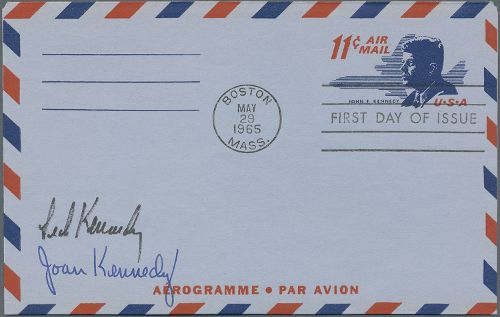 11¢ AIR MAIL
JOHN F. KENNEDY
U·S·A
BOSTON
MAY
29
1965
MASS.
FIRST DAY OF ISSUE
Ted Kennedy
Joan Kennedy
AEROGRAMME • PAR AVION